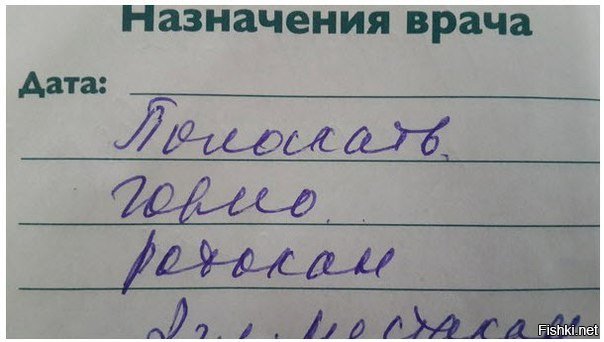 Назначения врача
Дата:
Полоскать
горло
ротокан
2 ч.л. на стакан
Fishki.net